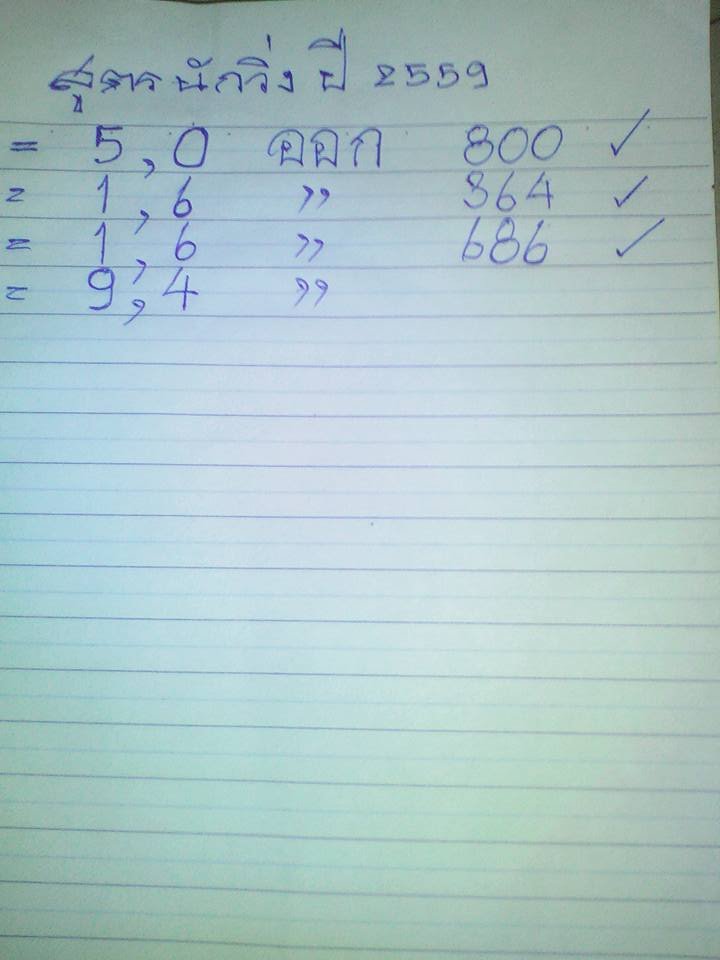 สูตรนักวิ่ง ปี 2559
= 5,0 ออก 800 ✓
= 1,6 " 364 ✓
= 1,6 " 686 ✓
= 9,4 "